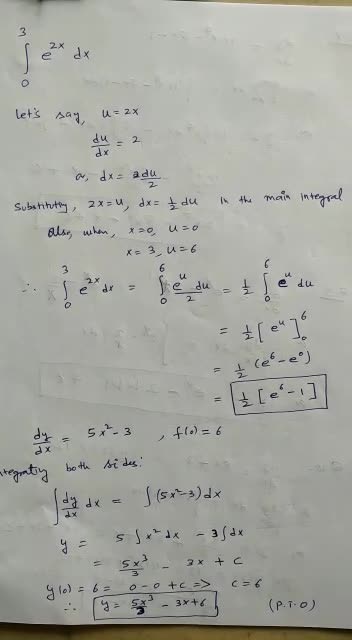 ∫₀³ e^{2x} dx
Let's say, u = 2x
du/dx = 2
or, dx = du/2
Substituting, 2x = u, dx = 1/2 du in the main integral
Also, when, x=0, u=0
x = 3, u = 6
∴ ∫₀³ e^{2x} dx = ∫₀⁶ e^u du/2 = 1/2 ∫₀⁶ e^u du
= 1/2 [e^u]₀⁶
= 1/2 (e⁶ - e⁰)
= 1/2 [e⁶ - 1]
dy/dx = 5x² - 3 , f(0) = 6
ntegrating both sides:
∫ dy/dx dx = ∫(5x² - 3) dx
y = 5 ∫ x² dx - 3 ∫ dx
= 5x³/3 - 3x + c
y(0) = 6 = 0 - 0 + c => c = 6
∴ y = 5x³/3 - 3x + 6 (P.T.O)